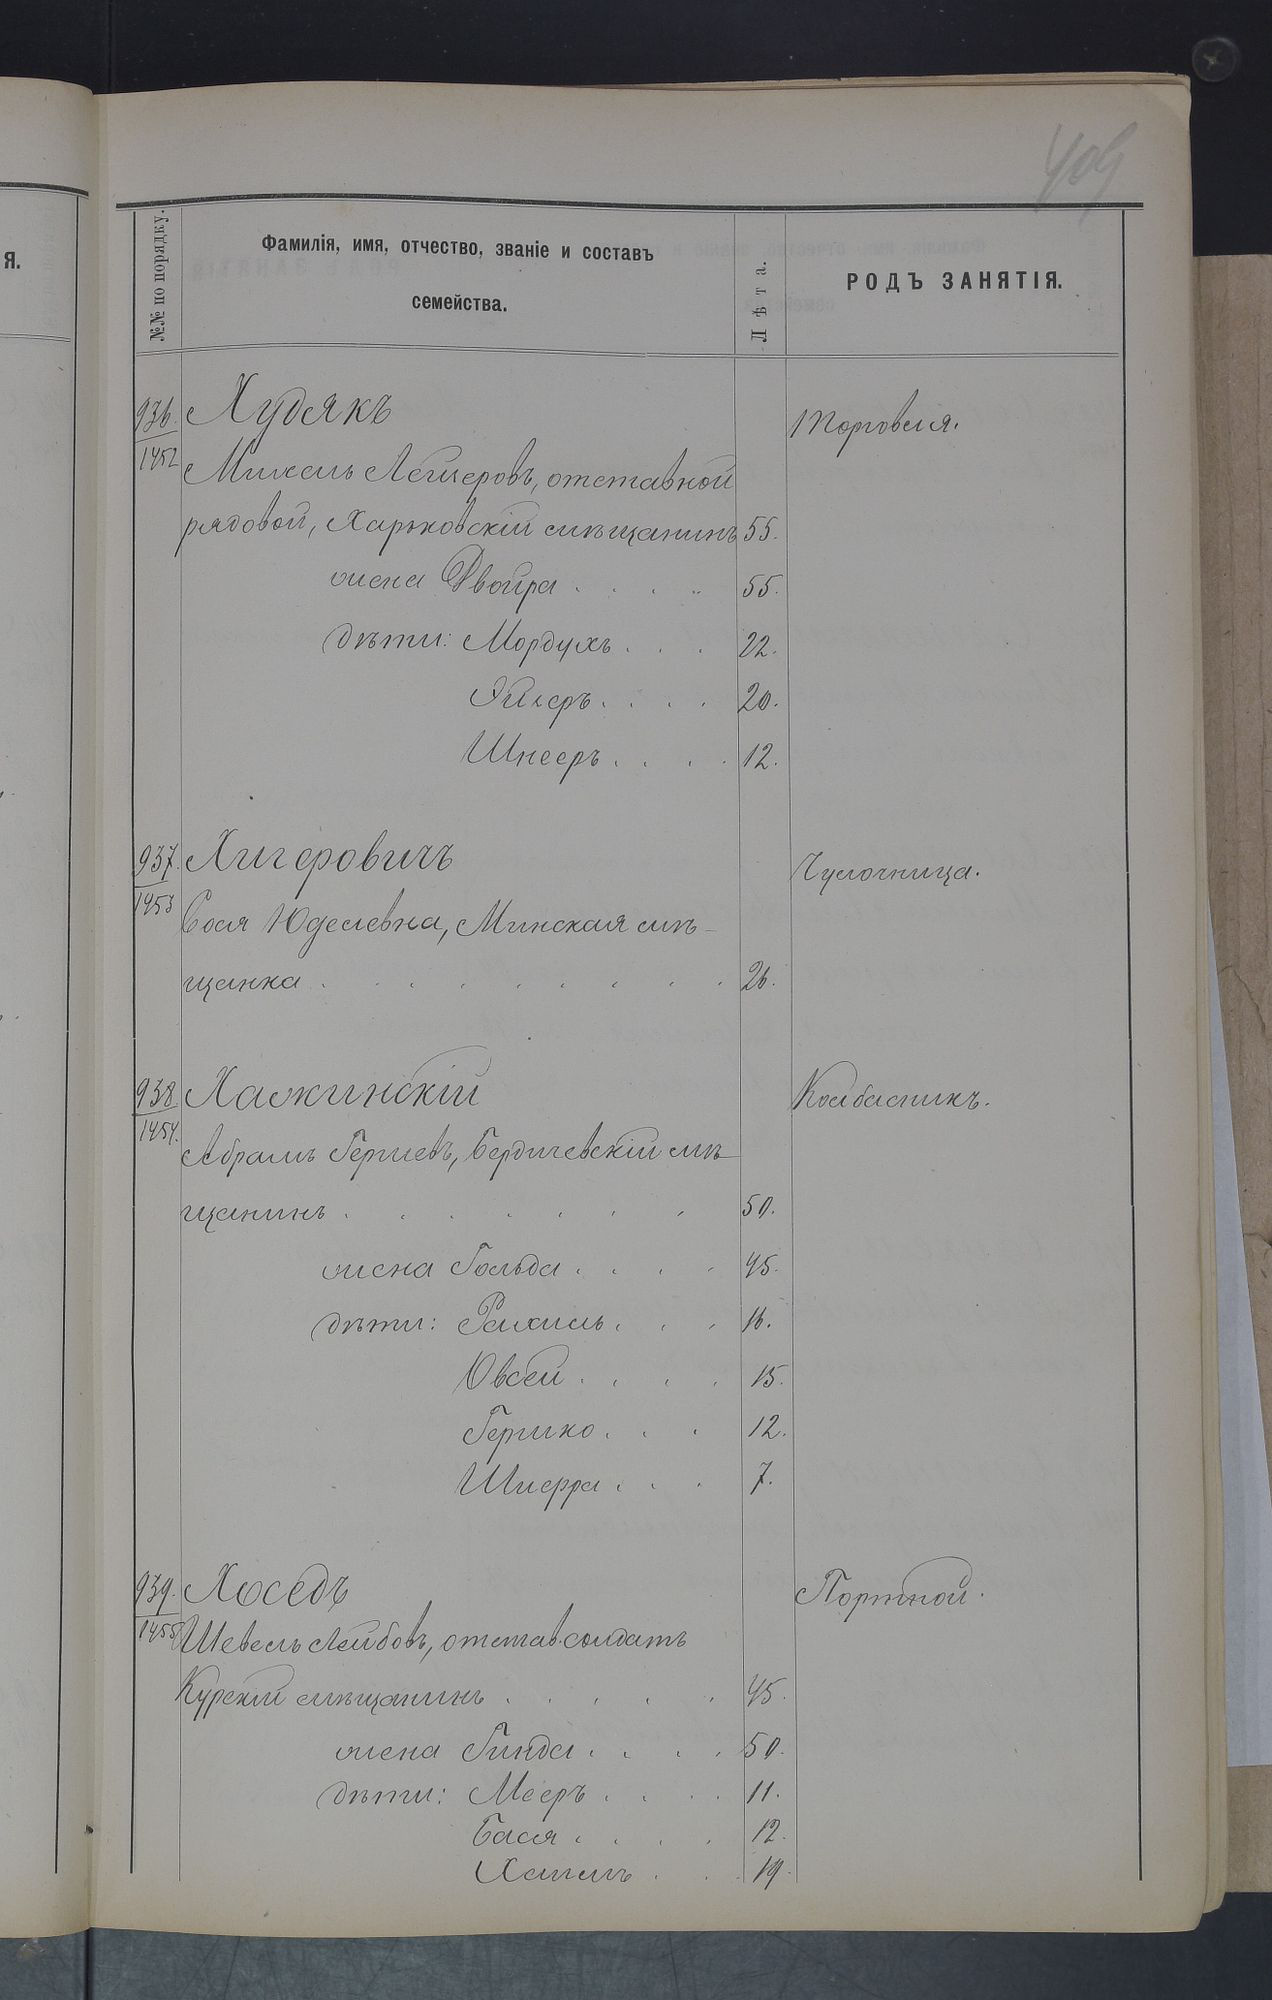 409
Я.
№№ по порядку.
Фамилія, имя, отчество, званіе и составъ
семейства.
Лѣта.
РОДЪ ЗАНЯТІЯ.
936. Худякъ Торговля.
1452 Михель Лейзеровъ, отставной
рядовой, Харьковскій мѣщанинъ 55.
жена Двойра . . . . 55.
дѣти: Мордухъ . . . 22.
20.
Шнееръ . . . . 12.
937. Хигеровичъ Чулочница.
1453 Сося Юделевна, Минская мѣ-
щанка . . . . . . . . 26.
938 Хажинскій Колбасникъ.
1454. Абрамъ Гершевъ, Бердичевскій мѣ-
щанинъ . . . . . . . 50.
жена Гольда . . . . 45.
дѣти: Рахиль . . . 16.
Овсей . . . . 15.
Гершко . . . 12.
7.
939. Хоседъ Портной.
1455 Шевель Лейбовъ, отстав. солдатъ
Курскій мѣщанинъ . . . . . 45.
жена Гинда . . . . 50.
дѣти: Мееръ . . . . 11.
Бася . . . . 12.
19.